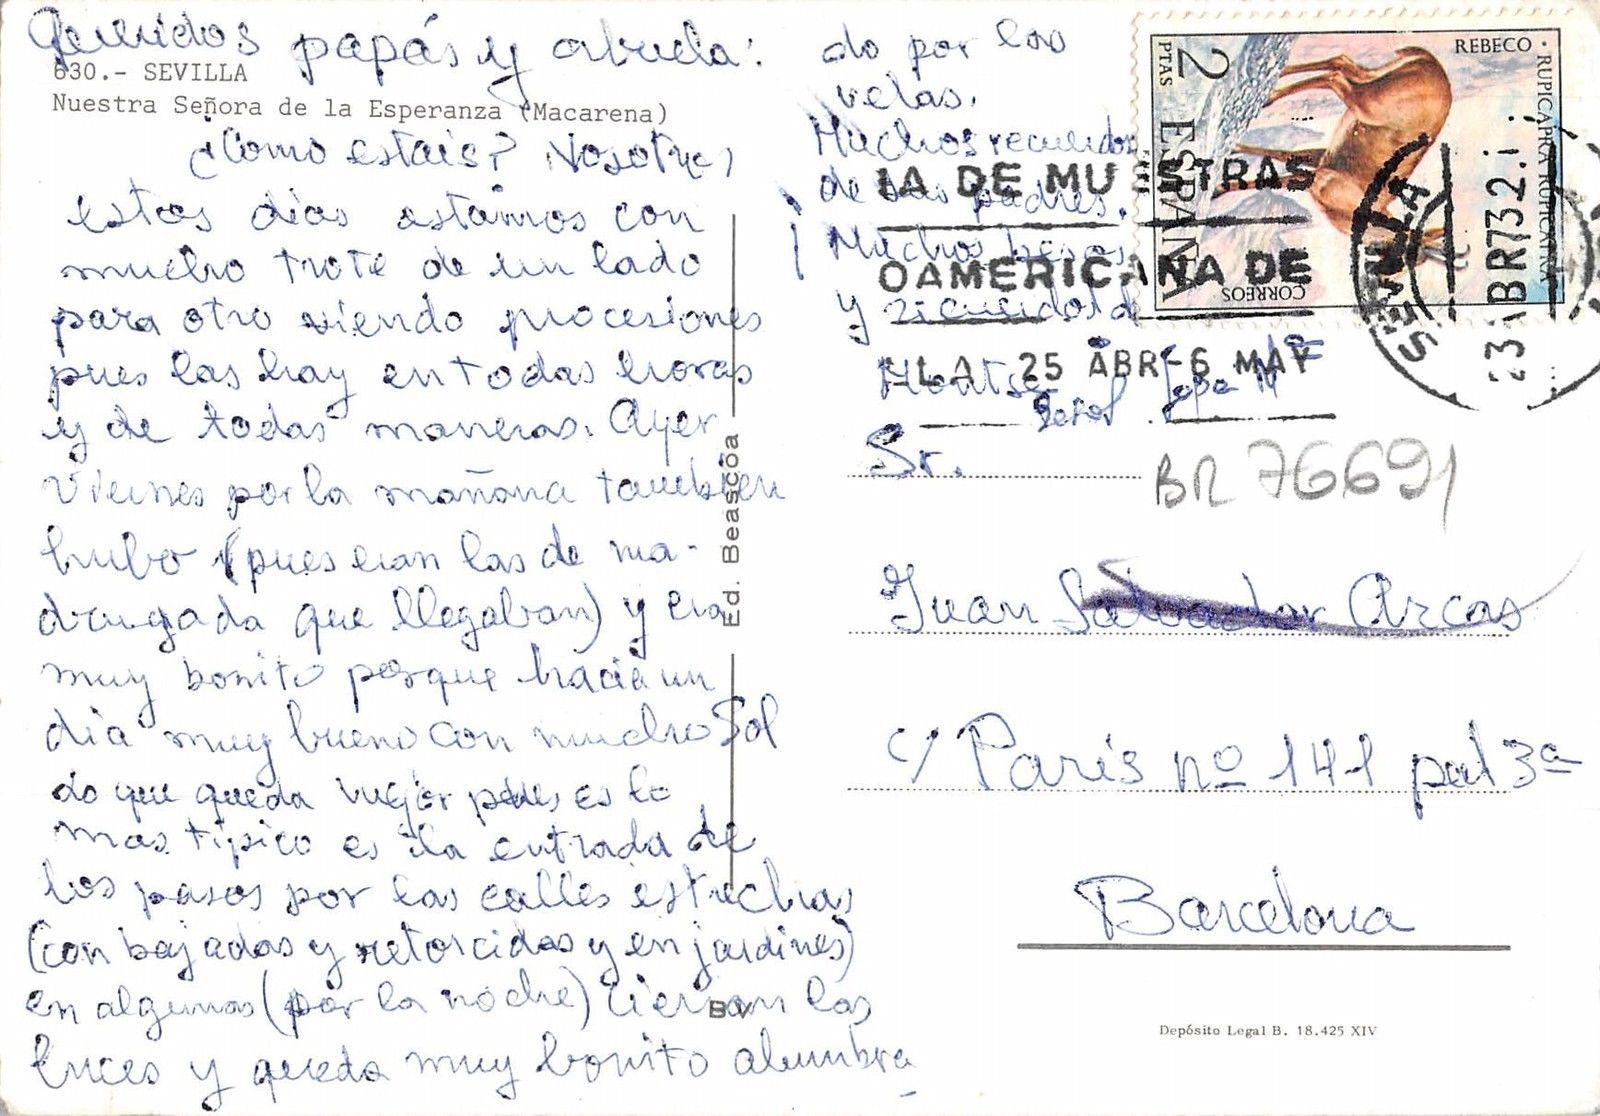 Queridos papás y abuela:
630.- SEVILLA
Nuestra Señora de la Esperanza (Macarena)
¿Como estais? Nosotros
estos dias estamos con
mucho trote de un lado
para otro viendo procesiones
pues las hay en todas horas
y de todas maneras. Ayer
Viernes por la mañana tambien
hubo (pues eran las de ma-
drugada que llegaban) y era
muy bonito porque hacia un
dia muy bueno con mucho Sol
do que queda mejor pues es lo
mas tipico es la entrada de
los pasos por las calles estrechas
(con bajadas y retorcidas y en jardines)
en algunas (por la noche) cierran las
luces y queda muy bonito alumbra
do por las
velas.
Muchos recuerdos
de sus padres.
¡Muchos besos
y recuerdos de
Montse
Pepa Mª
Ed. Beascoa
BV
2
PTAS
ESPAÑA
CORREOS
REBECO · RUPICAPRA RUPICAPRA
IA DE MUESTRAS
OAMERICANA DE
LLA 25 ABR-6 MAY
SEVILLA
23 ABR 73 2
BR 76691
Sr.
Juan Salvador Arcas
c/ París nº 141 pral 3ª
Barcelona
Depósito Legal B. 18.425 XIV